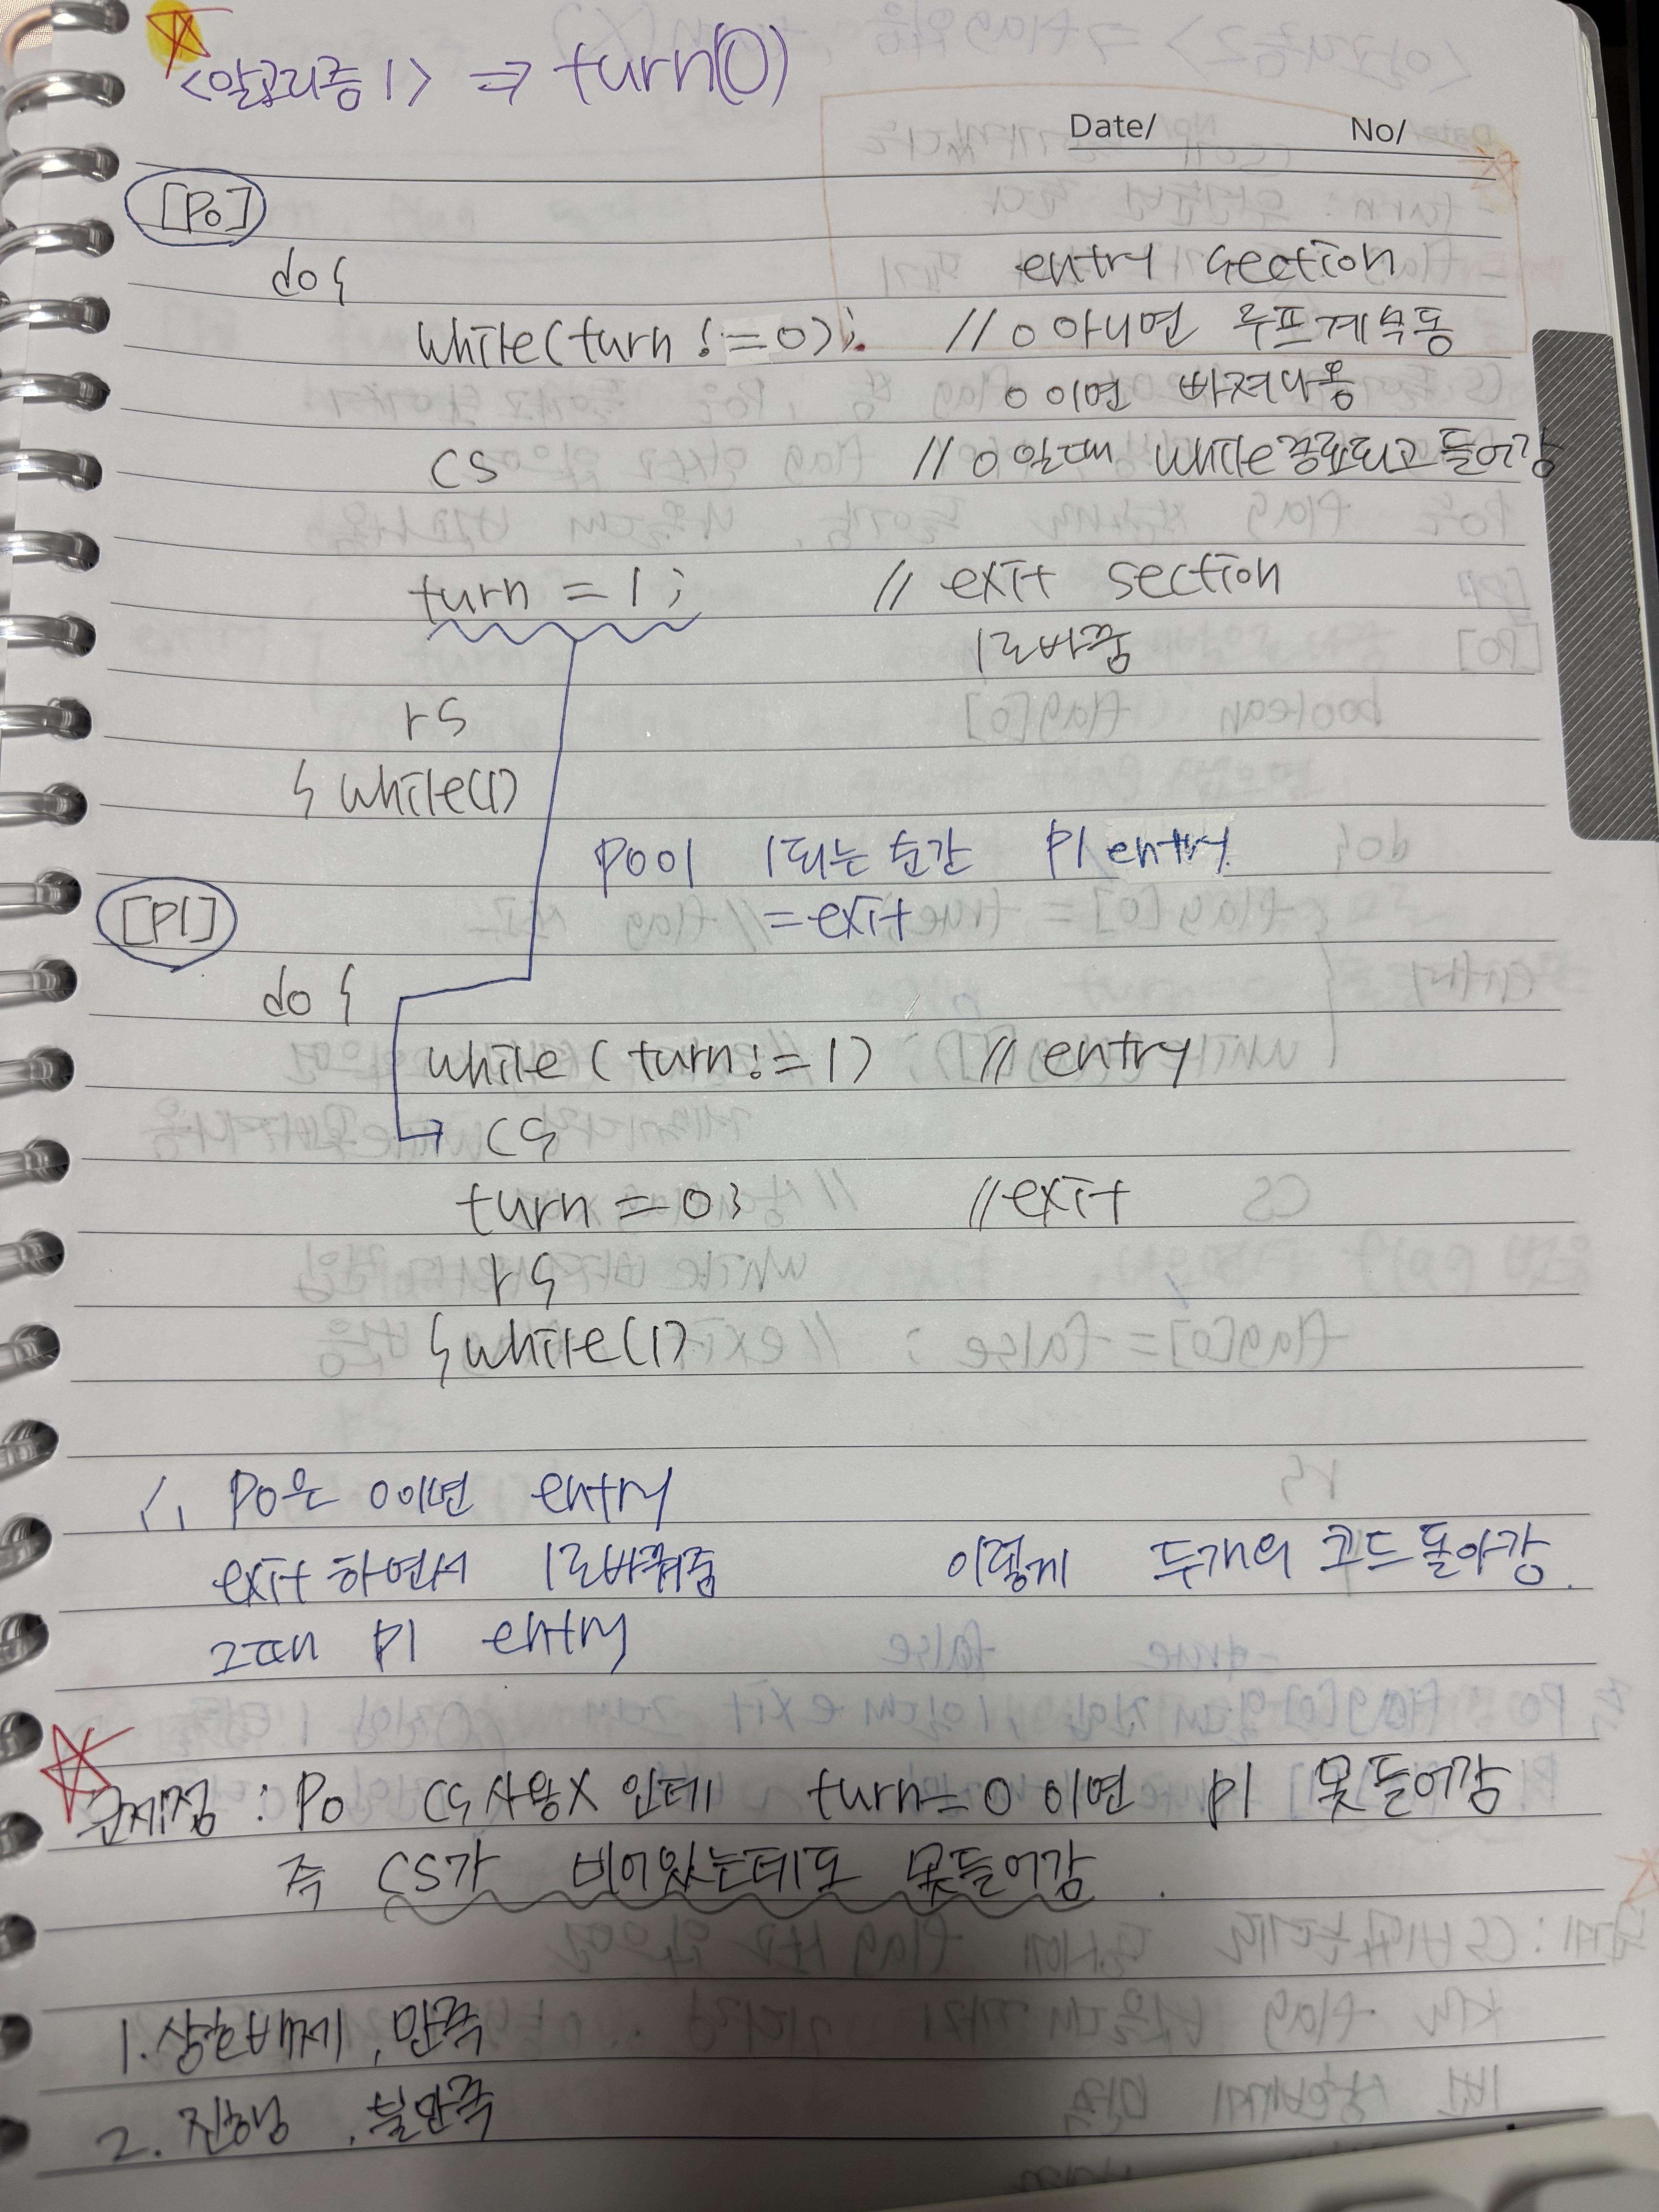 <알고리즘 1> ⇒ turn(0)
Date/ No/
[P0]
do{ entry section
while(turn != 0); // 0 아니면 루프계속돔
0 이면 빠져나옴
CS // 0일때 while종료되고 들어감
turn = 1; // exit section
1로바꿈
rs
} while(1)
P0이 1되는 순간 P1 entry
=exit
[P1]
do {
while ( turn != 1) // entry
CS
turn = 0; //exit
rs
} while(1)
∴ P0은 0이면 entry
exit 하면서 1로바꿔줌 이렇게 두개의 코드 돌아감.
그때 P1 entry
문제점 : P0 CS사용X 인데 turn=0 이면 P1 못들어감
즉 CS가 비어있는데도 못들어감.
1. 상호배제, 만족
2. 진행, 불만족